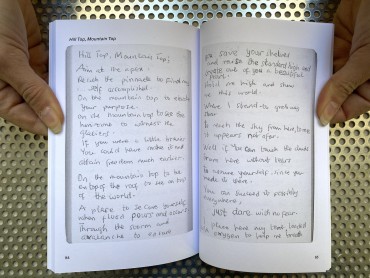 Hill Top, Mountain Top
Hill Top, Mountain Top!
Aim at the apex.
Reach the pinnacle to find my
self accomplished.
On the mountain top to elevate
your purpose.
On the mountain top to see the
hurricane to wonder the
glaciers.
If you were a little braver
You could have make it and
attain freedom much earlier.
On the mountain top to be
on top of the roof to see on top
of the world.
A place to secure yourself
when flood pours and
Through the storm and
64
save your shelves
and raise the standard high and
out of you a beautiful
pearl.
Build me high and show
me this world.
Where I stand to
To touch the sky from here, to me
it appears not afar.
Well, if You can touch the clouds
from here without tears
To
made
You can succeed to possibly
everywhere.
just dare with no fear.
please have my
oxygen to help me breath
65